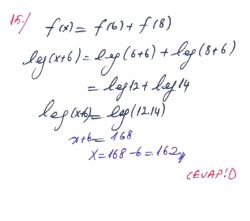 15-) f(x) = f(6) + f(8)
log(x+6) = log(6+6) + log(8+6)
= log12 + log14
log(x+6) = log(12.14)
x+6 = 168
x = 168 - 6 = 162//
CEVAP:D